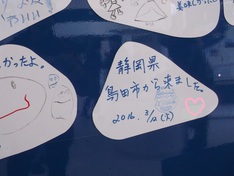 かったよ。
静岡県
島田市から来ました。
2016. 3/12 (土)